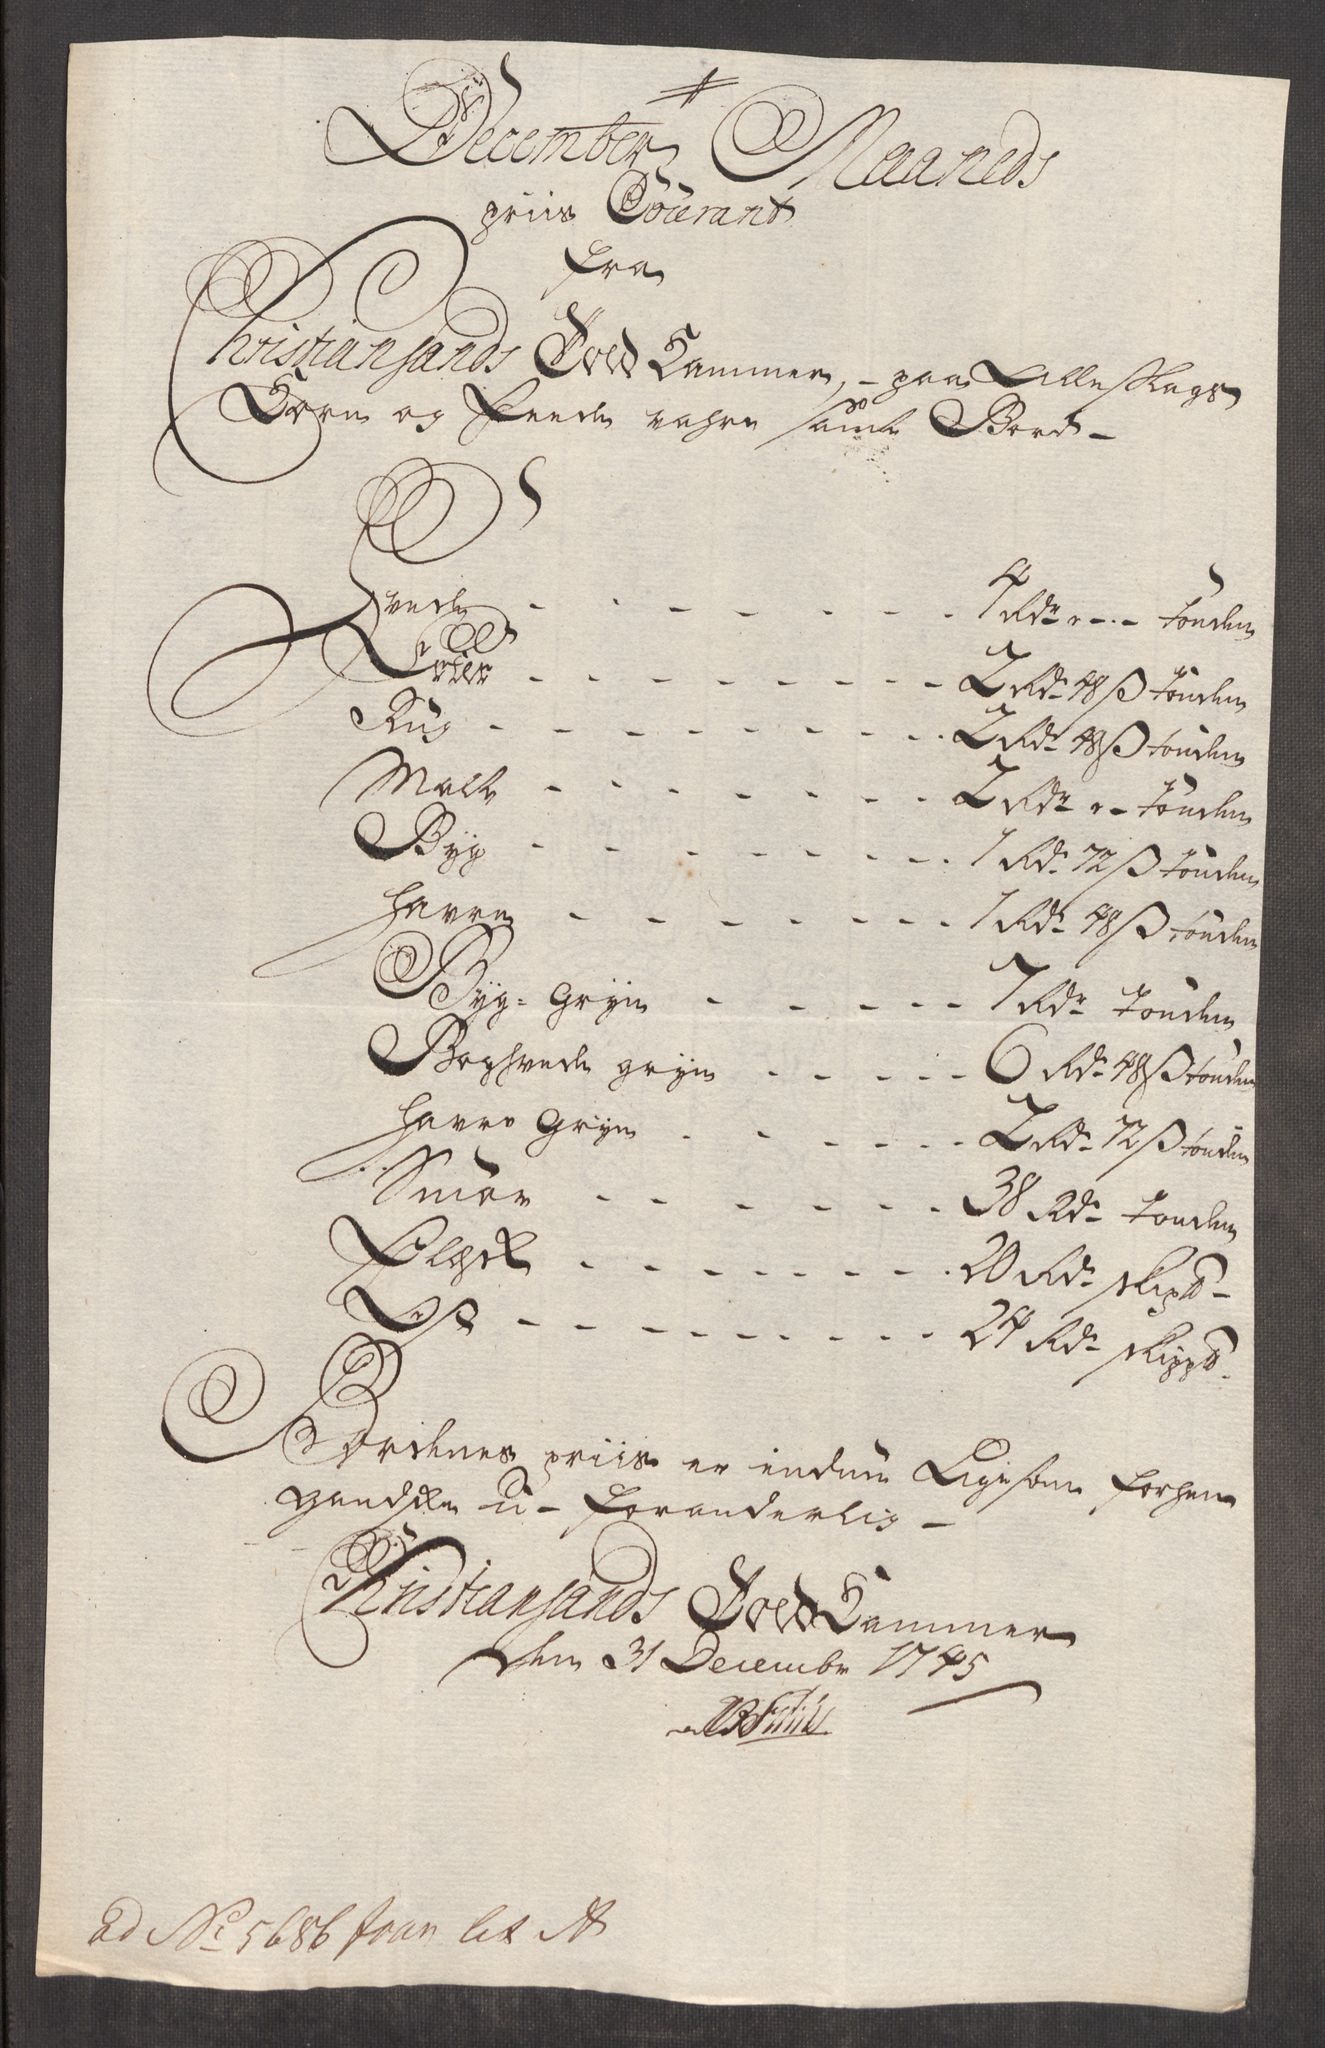 December Maaneds
priis Courant
fra
Christiansands Told Kammer, - paa Alle Slags
Korn og Feede vahre samt Bord -
Hvede - - - - - - - 4 Rdr " - . - tønden
Erter - - - - - - - - - 2 Rdr 48 ß tønden
Rug - - - - - - - - - 2 Rdr 48 ß tønden
Malt - - - - - - - 2 Rdr " - tønden
Byg - - - - - - - - 1 Rdr 72 ß tønden
Havre - - - - - - - 1 Rdr 48 ß tønden
Byg = Gryn - - - - - - 7 Rdr tønden
Boghvede gryn - - - - - 6 Rdr 48 ß tønden
Havre Gryn - - - - - - 2 Rdr 72 ß tønden
Smør - - - - - - 38 Rdr tønden
Flesk - - - - - - - - 20 Rdr skip℔ -
Ost - - - - - - - - - 24 Rdr skipp℔ -
Bordenes priis er endnu Ligesom forhen
gandske u- foranderlig -
Christiansands Told Kammer
den 31 Decembr 1745
ad No 5686 fran lit A